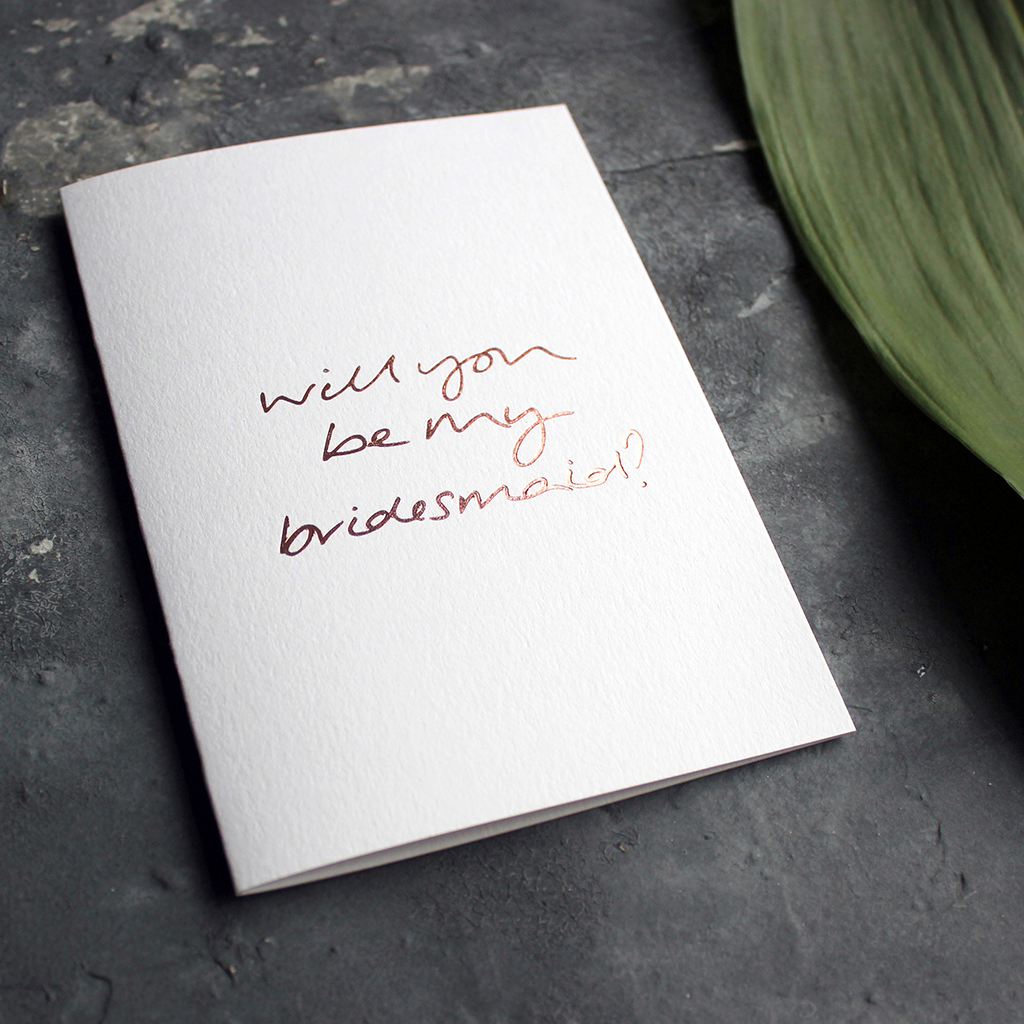 will you
be my
bridesmaid?